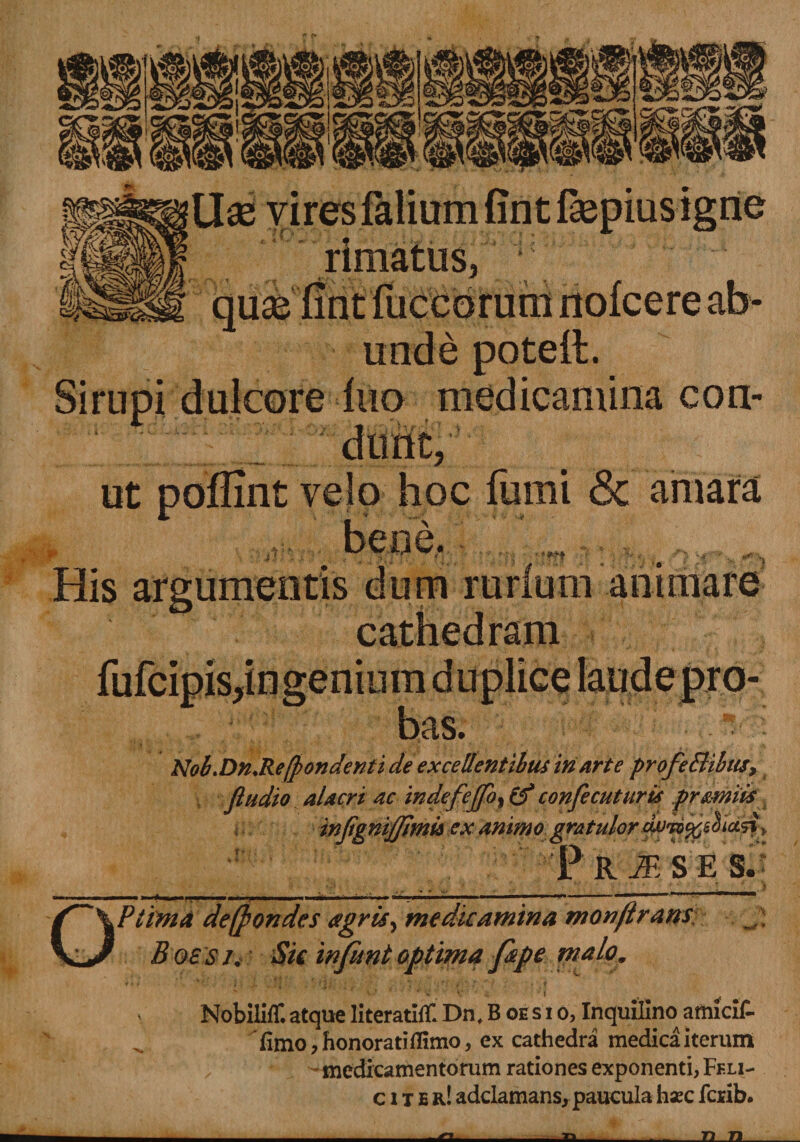 QUæ vires ſalium ſint ſæpius igne
rimatus,
quæ ſint ſuccorum noſcere ab-
undè poteſt.
Sirupi dulcore ſuo medicamina con-
dunt,
ut poſſint velo hoc ſumi & amara
benè.
His argumentis dum rurſum animare
cathedram
ſuſcipis, ingenium duplice laude pro-
bas.
Nob. Dn. Reſpondenti de excellentibus in arte profectibus,
ſtudio alacri ac indefeſſo, & conſecuturis præmiis
inſigniſſimis ex animo gratulor
PRÆSES.
OPtima deſpondes ægris, medicamina monſtrans
BOESI. Sic inſunt optima ſæpe malo.
Nobiliſſ. atque literatiſſ. Dn. BOESIO, Inquilino amiciſ-
ſimo, honoratiſſimo, ex cathedrâ medicâ iterum
medicamentorum rationes exponenti, FELI-
CITER! adclamans, paucula hæc ſcrib.